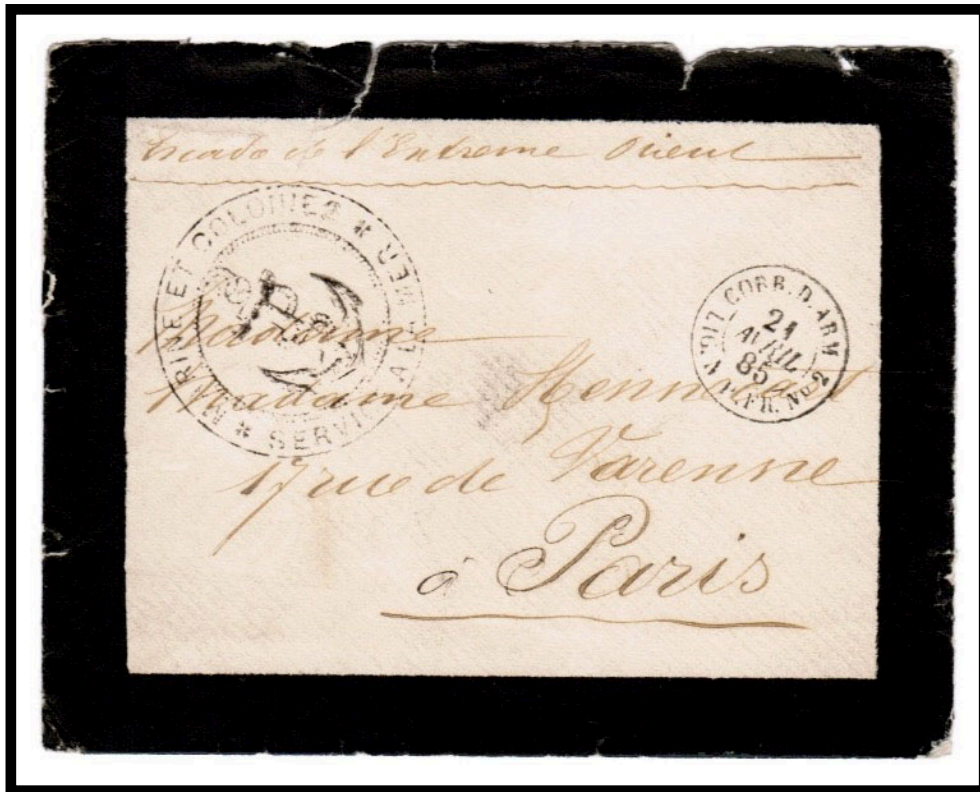 Escadre de l'Extreme Orient
MARINE ET COLONIES * SERVICE A LA MER *
CORR. D. ARM
LIG. V
PAQ. FR. No 2
21
AVRIL
85
Madame
Madame Hennecart
17 rue de Varenne
à Paris